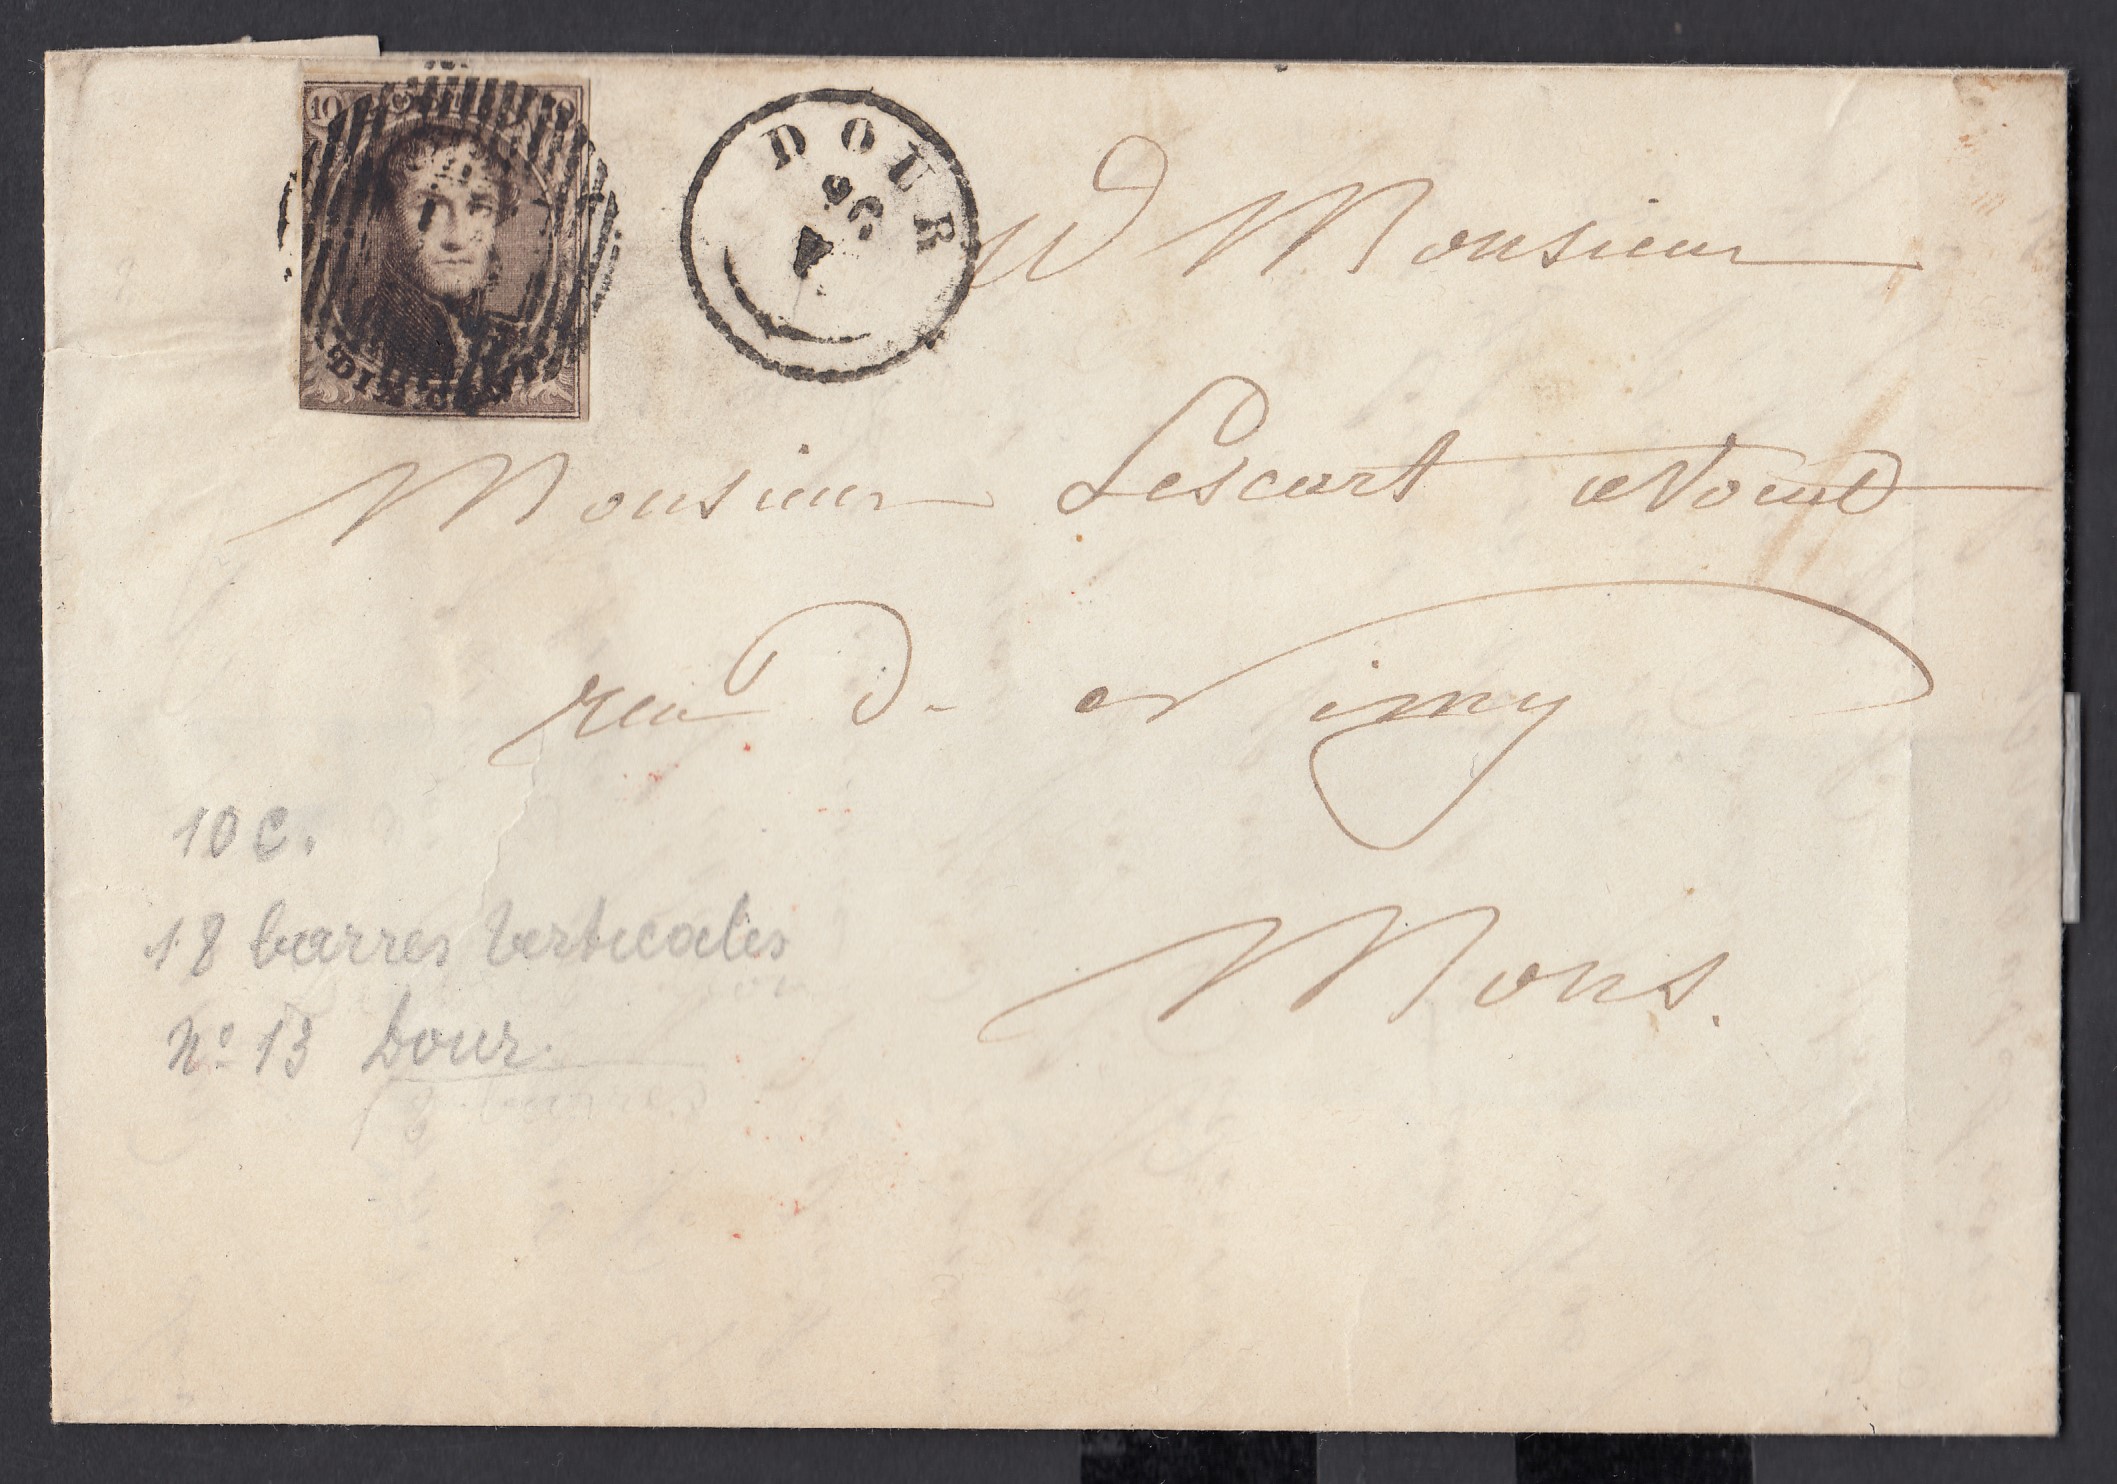 10
DOUR
26
A Monsieur
Monsieur Lescart avoué
rue de Nimy
Mons.
10 C.
18 barres verticales
No 13 Dour.